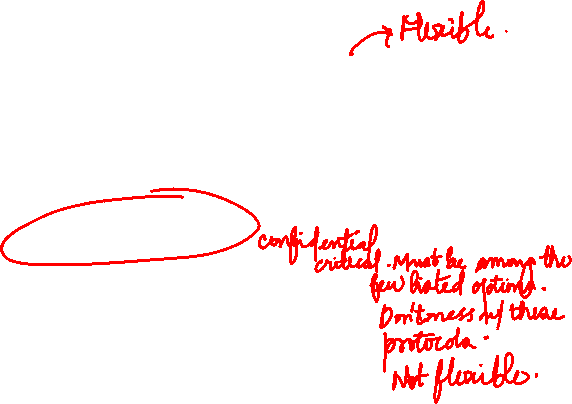 Flexible.
confidential
critical. Must be among the
few listed options.
Don't mess w/ these
protocols.
Not flexible.